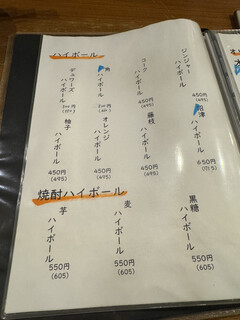 ハイボール
ジンジャーハイボール
450円
(495)
コークハイボール
450円
(495)
角ハイボール
デュワーズハイボール
沼津
ハイボール
650円
(715)
藤枝ハイボール
450円
(495)
オレンジハイボール
450円
(495)
柚子ハイボール
450円
(495)
焼酎ハイボール
黒糖ハイボール
550円
(605)
麦ハイボール
550円
(605)
芋ハイボール
550円
(605)